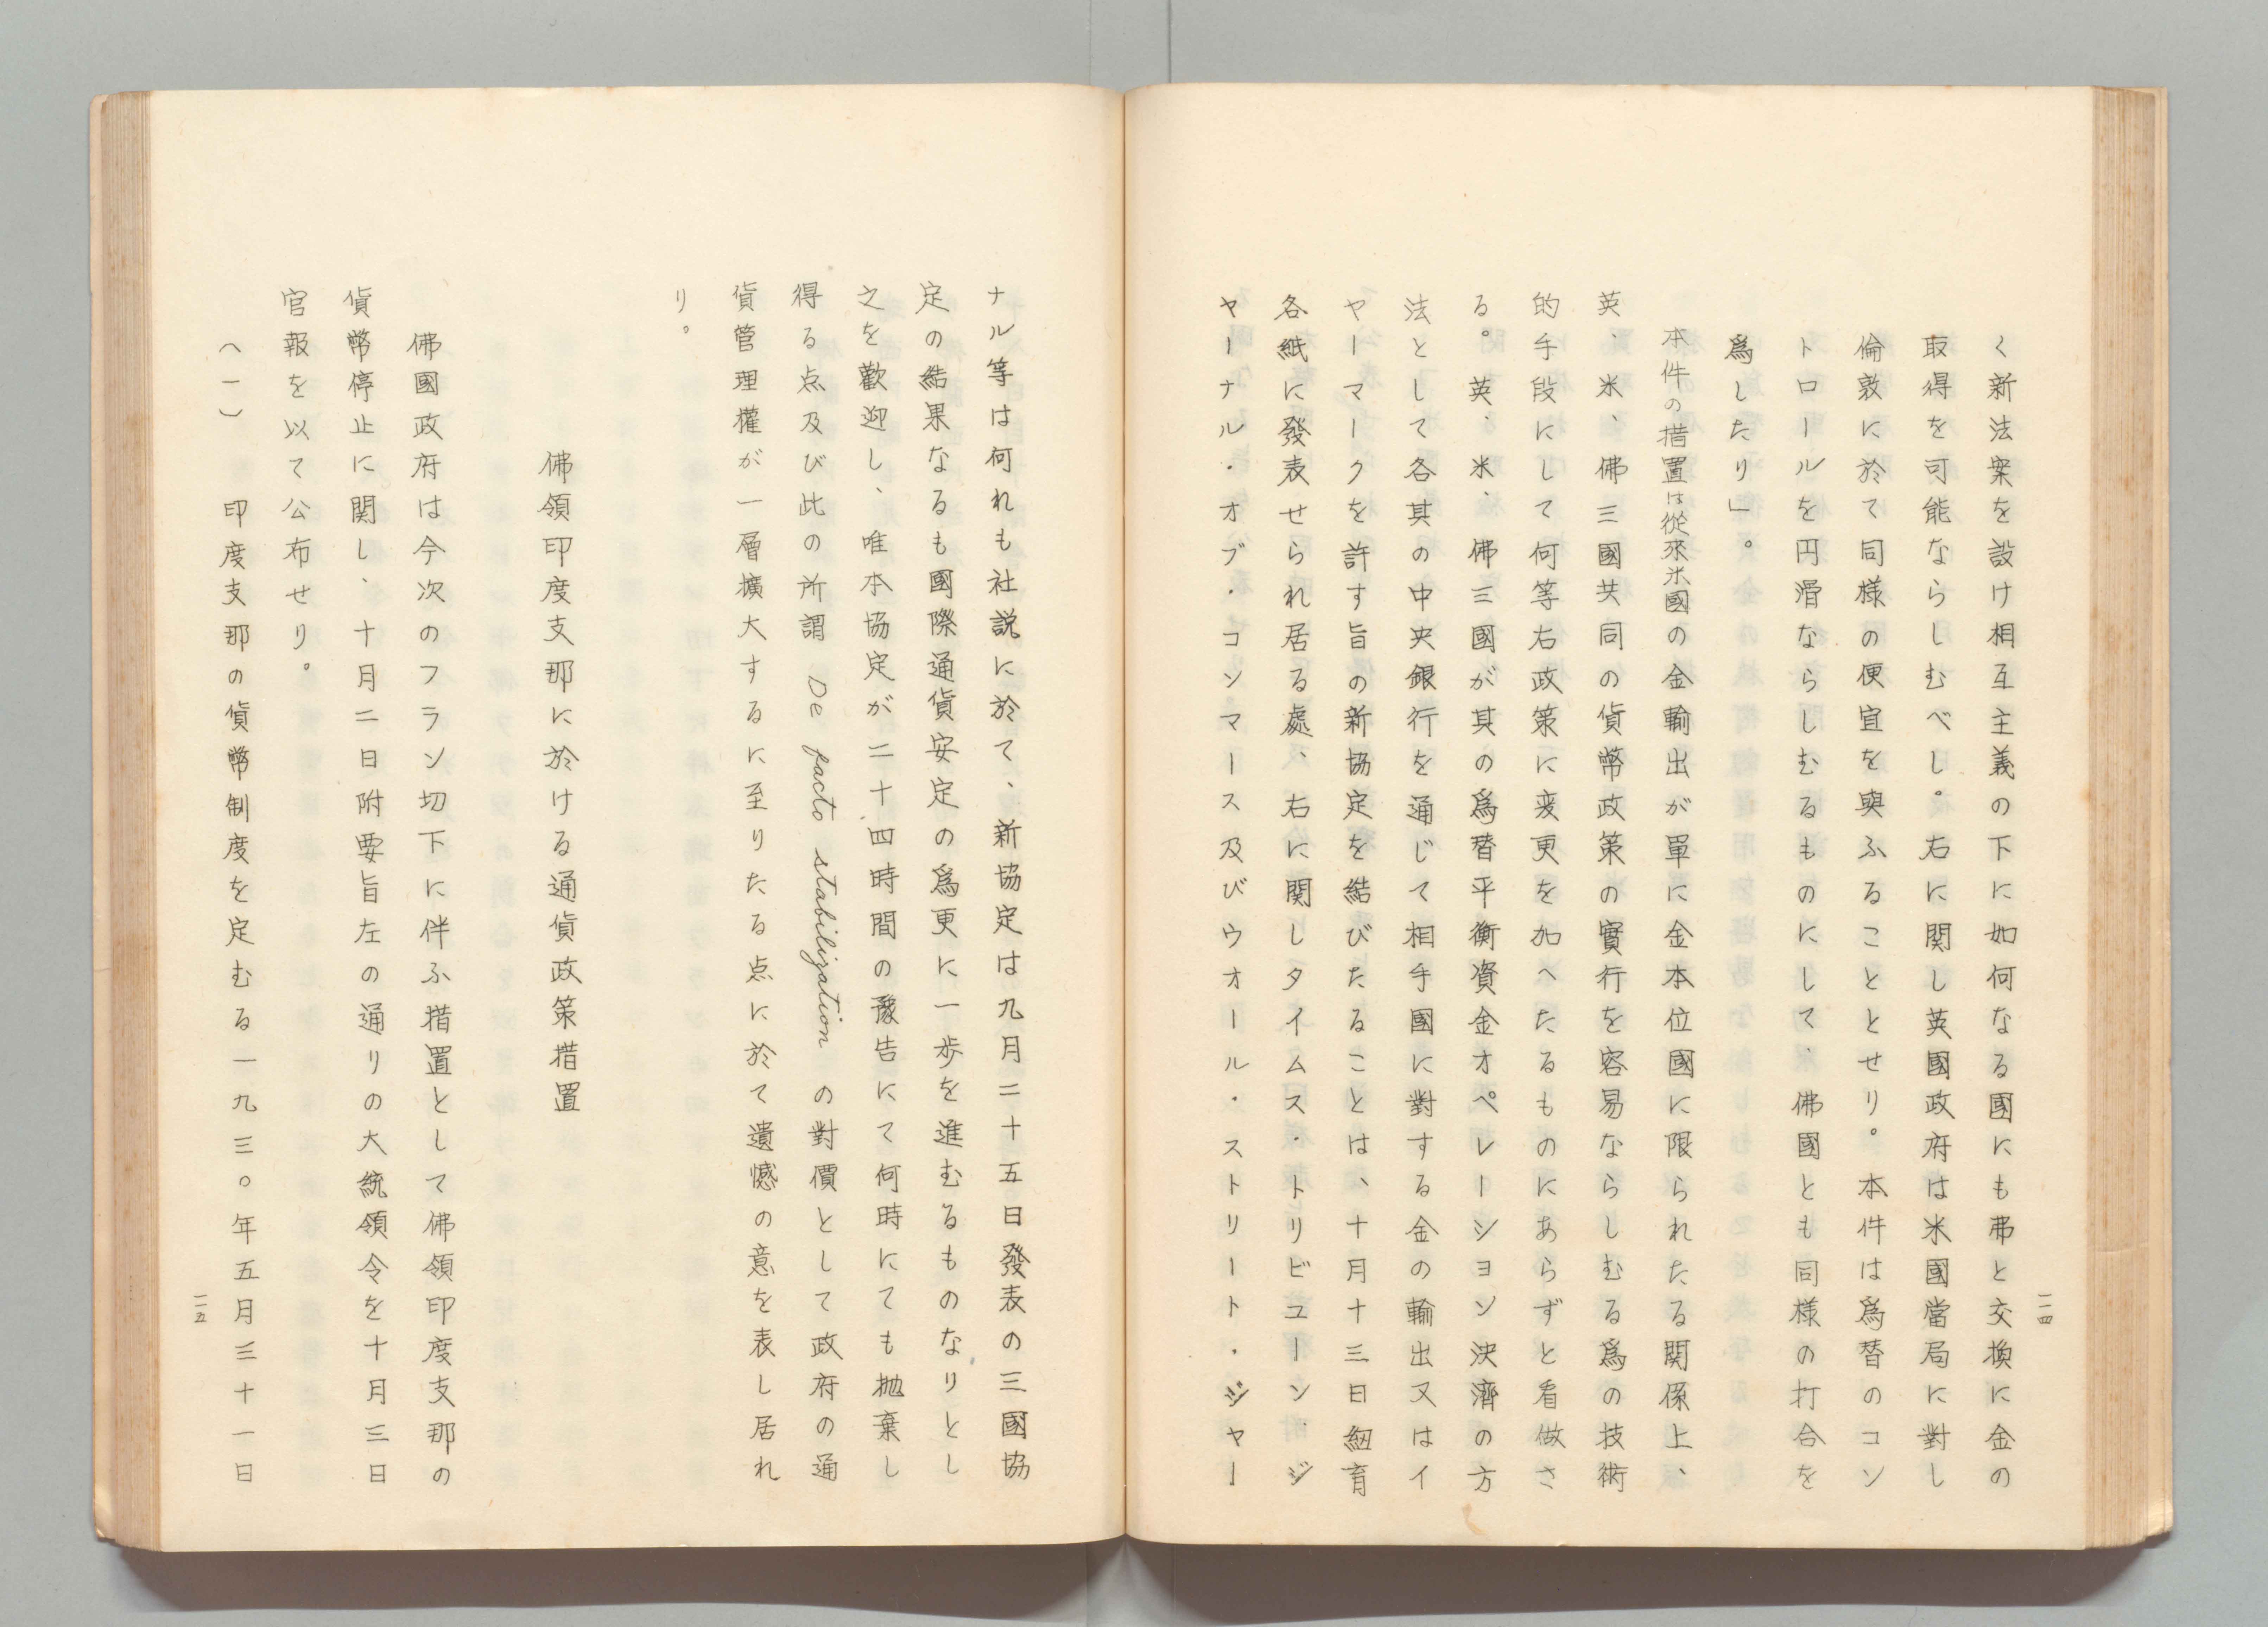 く新法案を設け相互主義の下に如何なる國にも弗と交換に金の
取得を可能ならしむべし。右に関し英國政府は米國當局に對し
倫敦に於て同様の便宜を與ふることとせり。本件は爲替のコン
トロールを円滑ならしむるものにして、佛國とも同様の打合を
爲したり」。
本件の措置は從來米國の金輸出が單に金本位國に限られたる関係上、
英、米、佛三國共同の貨幣政策の實行を容易ならしむる爲の技術
的手段にして何等右政策に変更を加へたるものにあらずと看做さ
る。英、米、佛三國が其の爲替平衡資金オペレーション決濟の方
法として各其の中央銀行を通じて相手國に對する金の輸出又はイ
ヤーマークを許す旨の新協定を結びたることは、十月十三日紐育
各紙に發表せられ居る處、右に関しタイムス・トリビユーン、ジ
ヤーナル・オブ・コンマース及びウオール・ストリート・ジヤー
二一四
ナル等は何れも社説に於て、新協定は九月二十五日發表の三國協
定の結果なるも國際通貨安定の爲更に一歩を進むるものなりとし
之を歡迎し、唯本協定が二十四時間の豫告にて何時にても抛棄し
得る点及び此の所謂 De facto stabilization の對價として政府の通
貨管理權が一層擴大するに至りたる点に於て遺憾の意を表し居れ
り。
佛領印度支那に於ける通貨政策措置
佛國政府は今次のフラン切下に伴ふ措置として佛領印度支那の
貨幣停止に関し、十月二日附要旨左の通りの大統領令を十月三日
官報を以て公布せり。
(一) 印度支那の貨幣制度を定むる一九三〇年五月三十一日
二一五